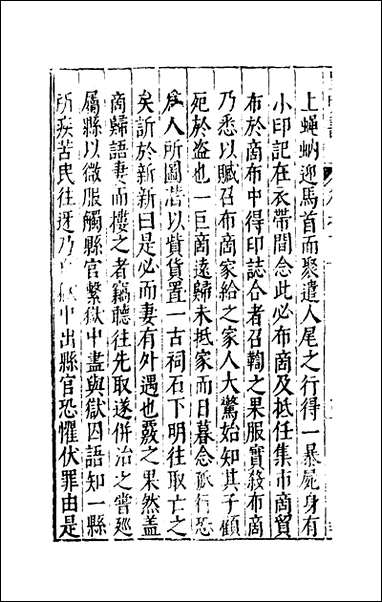 上蝇蚋迎馬首而聚遣人尾之行得一暴屍身有
小印記在衣帶間念此必布商及抵任集市商貿
布於商布中得印誌合者召鞫之果服實殺布商
乃悉以贓召布商家給之家人大驚始知其子頋
死於盗也一巨商遠歸未抵家而日暮念孤行恐
爲人所圖潜以貲貨置一古祠石下明往取亡之
矣訢於新新曰是必而妻有外遇也覈之果然盖
商歸語妻而樓之者竊聽往先取遂併治之嘗廵
屬縣以微服觸縣官繫獄中盡與獄囚語知一縣
所疾苦民往迓乃 中出縣官恐懼伏罪由是